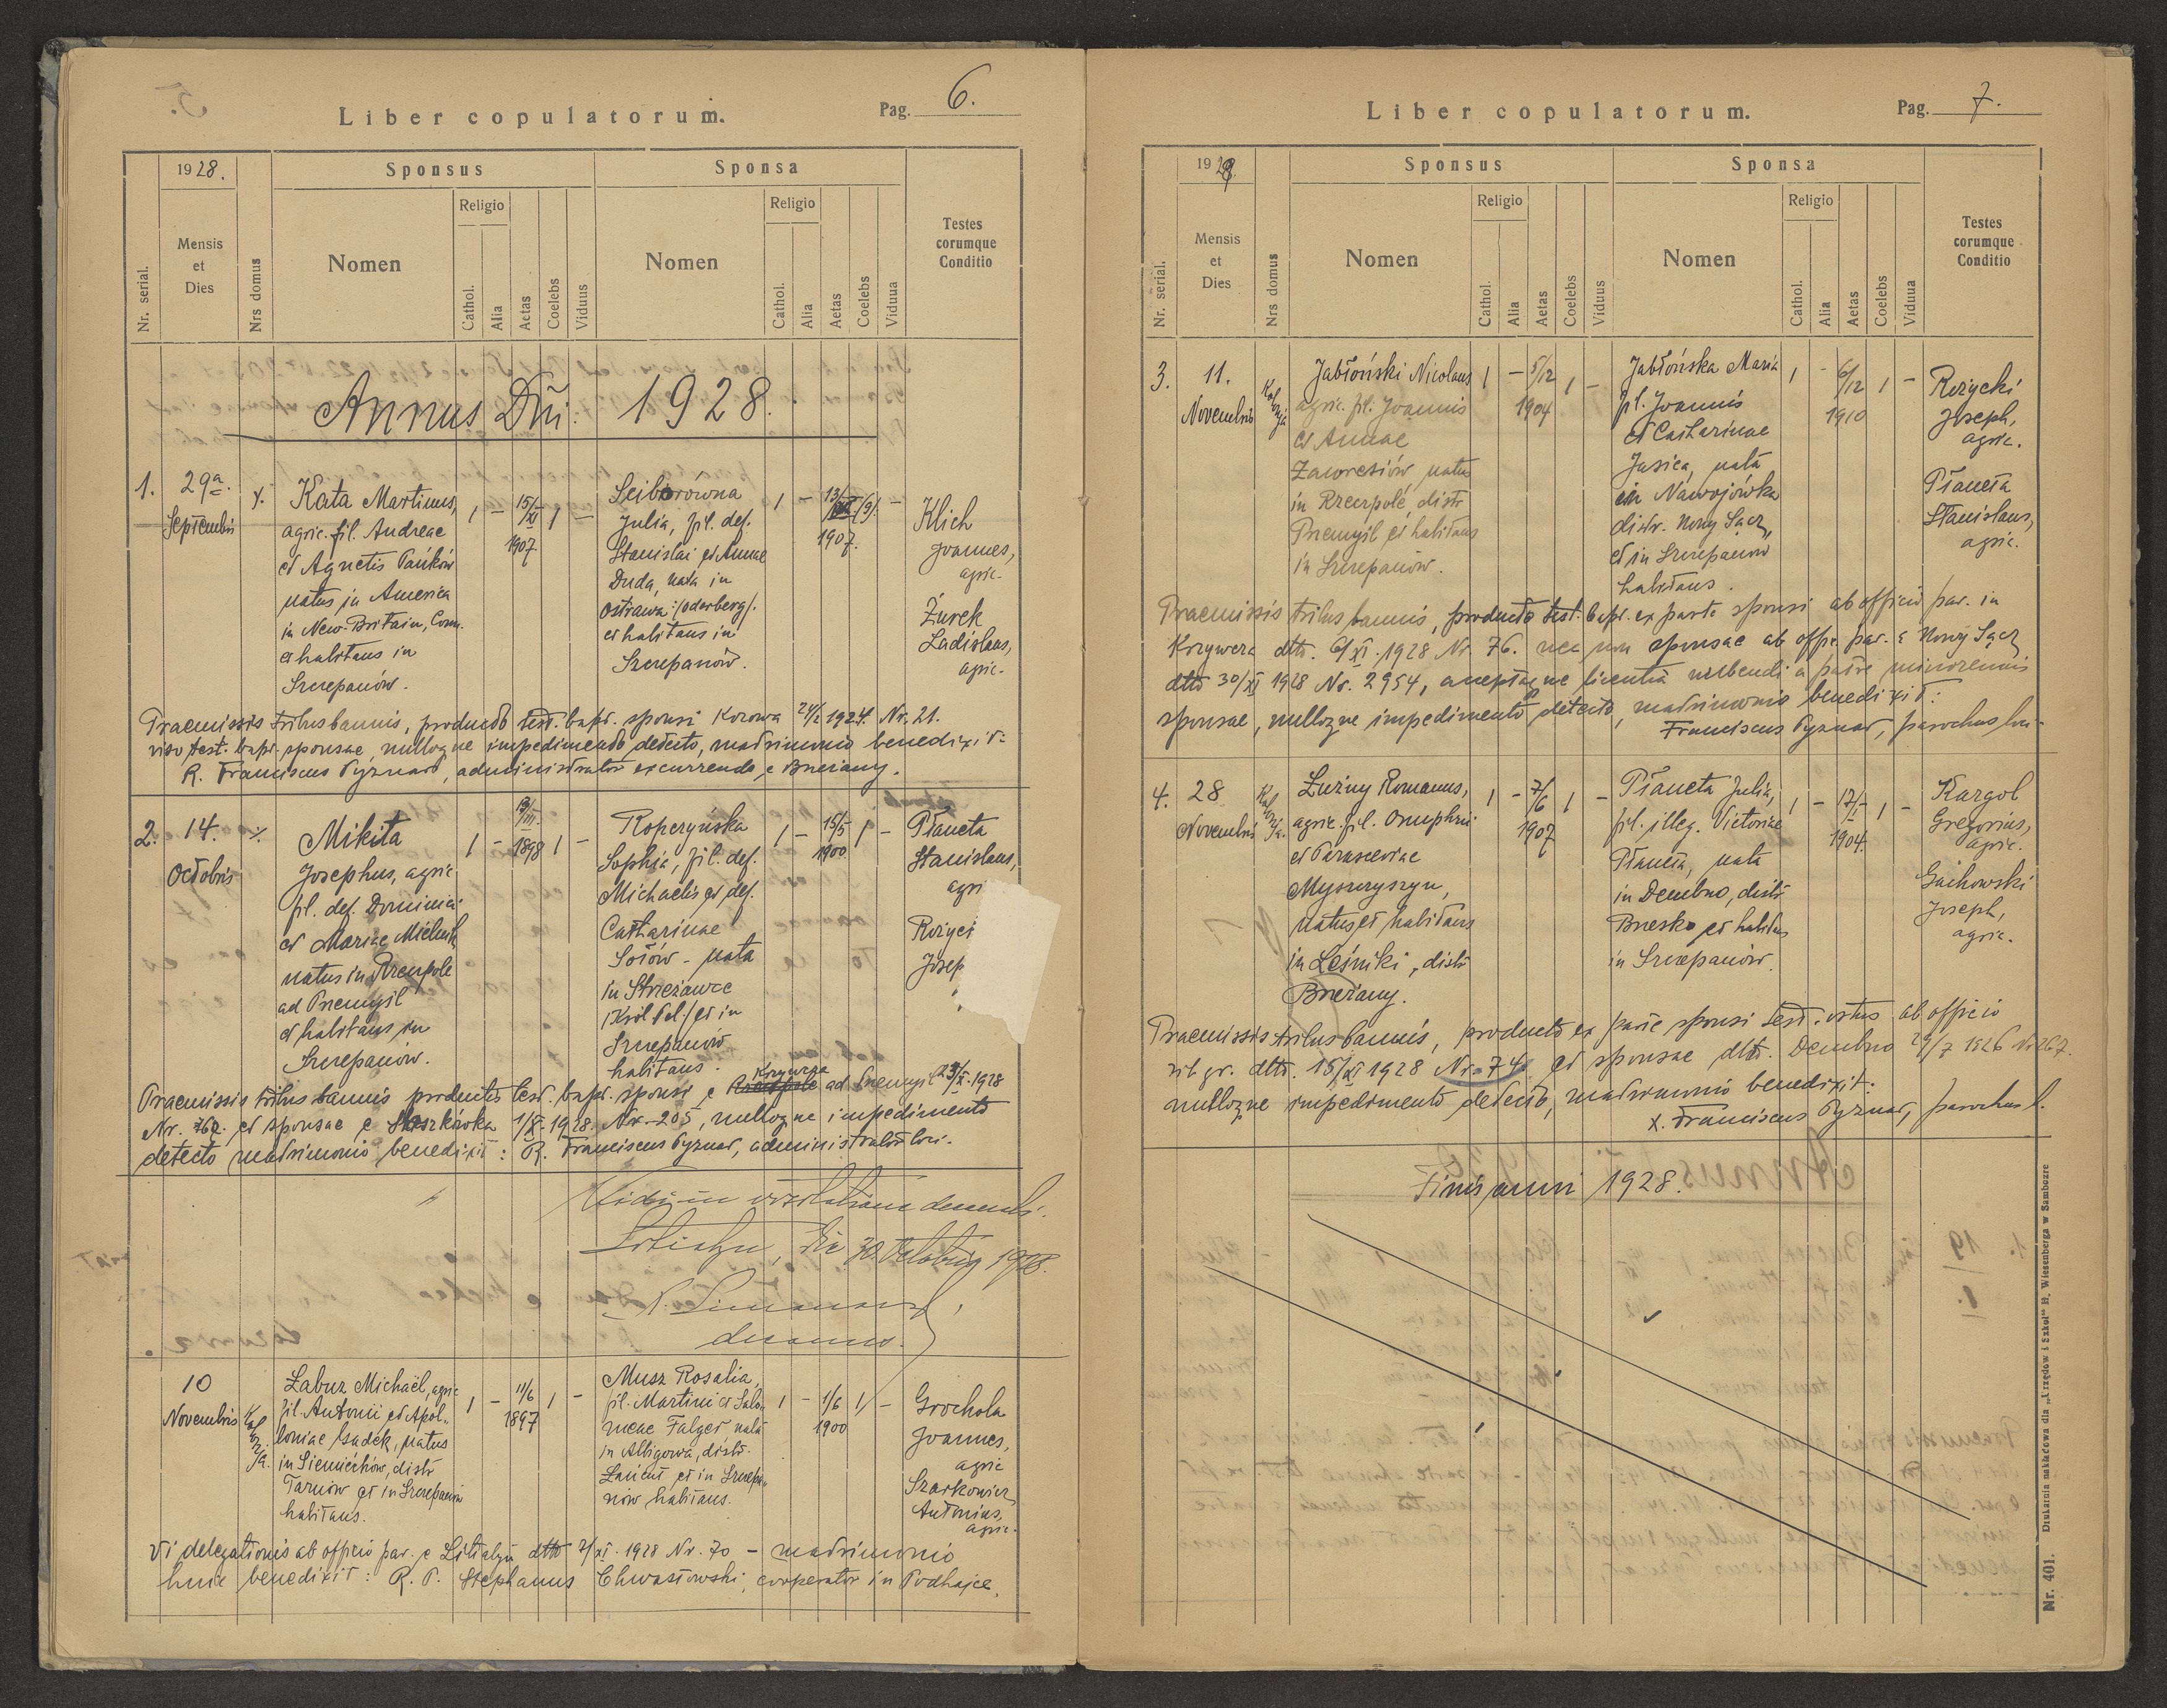 Liber copulatorum.
Pag. 6.
1928.
Sponsus
Sponsa
Nr. serial.
Mensis
et
Dies
Nrs domus
Nomen
Religio
Cathol.
Alia
Aetas
Coelebs
Viduus
Nomen
Religio
Cathol.
Alia
Aetas
Coelebs
Vidua
Testes
eorumque
Conditio
Annus Dñi: 1928.
1.
29a.
Septembris
Kata Martinus,
agric. fil. Andreae
et Agnetis Pańków
natus in America
in New-Britain, Conn.
et habitans in
Szczepanów.
1
-
15/XI
1907.
1
-
Julia, fil. def.
Stanislai et Annae
Duda, nata in
Ostrawa /oderberg/.
et habitans in
Szczepanów.
1
-
1907.
-
Klich
Joannes,
agric.
Żurek
Ladislaus,
agric.
Praemissis tribus bannis, producto test. bapt. sponsi Kozowa 1924. Nr. 21.
viso test. bapt. sponsae, nulloque impedimento detecto, matrimonio benedixit:
R. Franciscus Pyznar, administrator excurrendo e Brzeżany.
2.
14.
Octobris
Mikita
Josephus, agric.
fil. def. Dominici
et Mariae Mielnik
natus in Rzeczpole
ad Przemyśl
et habitans in
Szczepanów.
1
-
13/III.
1898
1
-
Kopczyńska
Sophia, fil. def.
Michaelis et def.
Catharinae
Sołów - nata
in Strzeżawce
/Król. Pol./ et in
Szczepanów
habitans.
1
-
15/5
1900
1
-
Płaneta
Stanislaus,
agri
Rożyci
Josep
Praemissis tribus bannis productis test. bapt. sponsi e Krzywcza ad Przemyśl 1928
Nr. et sponsae e 1/X. 1928. Nr. 205, nulloque impedimento
detecto matrimonio benedixit: R. Franciscus Pyznar, administrator loci.
Vidi in visitatione decanali.
Litiatyn, die 30. Octobris 1928.
decanus.
10
Novembris
Łabuz Michaël, agric
fil. Antonii et Apol-
loniae Sadek, natus
in Siemiechów, distr
Tarnów et in Szczepanów
habitans.
1
-
11/6
1897
1
-
Musz Rosalia,
fil. Martini et Salo-
meae Falger, nata
in Albigowa, distr.
Łańcut et in Szczepa-
nów habitans.
1
-
1/6
1900
1
-
Grochola
Joannes,
agric
Szarkowicz
Antonius,
agric.
Vi delegationis ab officio par. e Litiatyn dtto 2/XI. 1928 Nr. 70 - matrimonio
huic benedixit: R. P. Stephanus Chwastowski, cooperator in Podhajce.
Liber copulatorum.
Pag. 7.
1928.
Sponsus
Sponsa
Nr. serial.
Mensis
et
Dies
Nrs domus
Nomen
Religio
Cathol.
Alia
Aetas
Coelebs
Viduus
Nomen
Religio
Cathol.
Alia
Aetas
Coelebs
Vidua
Testes
eorumque
Conditio
3.
11.
Novembris
Jabłoński Nicolaus
agric. fil. Joannis
et Annae
natus
in Rzeczpole, distr
Przemyśl et habitans
in Szczepanów.
1
-
5/12
1904
1
-
Jabłońska Maria
fil. Joannis
et Catharinae
Jasica, nata
in Nawojówka
distr. Nowy Sącz,
et in Szczepanów
habitans.
1
-
6/12
1910
1
-
Rożycki
Joseph,
agric.
Płaneta
Stanislaus,
agric.
Praemissis tribus bannis, producto test. bapt. ex parte sponsi ab officio par. in
Krzywcza dtto. 6/XI. 1928 Nr. 76. nec non sponsae ab offic. par. e Nowy Sącz
dtto 30/XI 1928 Nr. 2954, acceptaque licentia nubendi a patre minorennis
sponsae, nulloque impedimento detecto, matrimonio benedixit:
Franciscus Pyznar, parochus loci
4.
28
Novembris
Łużny Romanus,
agric. fil. Onuphrii
et Parasceviae
Myszczyszyn,
natus et habitans
in Leśniki, distr
Brzeżany.
1
-
7/6
1907
1
-
Płaneta Julia,
fil. illeg. Victoriae
Płaneta, nata
in Dembno, distr
Brzesko et habitans
in Szczepanów.
1
-
17/I
1904.
1
-
Kargol
Gregorius,
agric.
Gaikowski
Joseph,
agric.
Praemissis tribus bannis, producto ex parte sponsi test. ortus ab officio
rit gr. dtto. 15/XI 1928 Nr. 74. et sponsae dtto. Dembno 29/7 1926 Nr 267.
nulloque impedimento detecto, matrimonio benedixit:
X. Franciscus Pyznar, parochus l.
Finis anni 1928.
Nr. 401. Drukarnia nakładowa dla „Urzędów i Szkół" H. Wiesenberga w Samborze